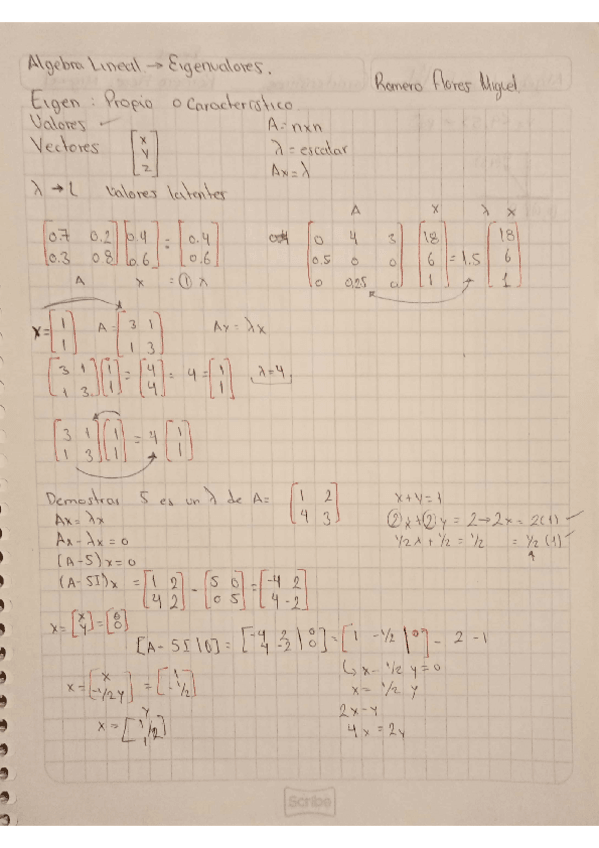 Algebra Lineal → Eigenvalores.
Romero Flores Miguel.
Eigen : Propio o Característico.
Valores
Vectores [x y z]
A = nxn
λ = escalar
Ax = λ
λ → L valores latentes
[0.7 0.2; 0.3 0.8] [0.4; 0.6] = [0.4; 0.6]
A x = ① λ
A x λ x
[0 4 3; 0.5 0 0; 0 0.25 0] [18; 6; 1] = 1.5 [18; 6; 1]
x = [1; 1] A = [3 1; 1 3] Ax = λx
[3 1; 1 3] [1; 1] = [4; 4] = 4 = [1; 1] λ = 4
[3 1; 1 3] [1; 1] = 4 [1; 1]
Demostrar 5 es un λ de A = [1 2; 4 3]
Ax = λx
Ax - λx = 0
(A - 5)x = 0
(A - 5I)x = [1 2; 4 2] - [5 0; 0 5] = [-4 2; 4 -2]
x + y = 1
②x + ②y = 2 → 2x = 2(1)
1/2 x + 1/2 = 1/2 = 1/2 (1)
x = [x; y] = [0; 0]
[A - 5I | 0] = [-4 2 | 0; 4 -2 | 0] = [1 -1/2 | 0] - 2 -1
↳ x - 1/2 y = 0
x = 1/2 y
2x - y
4x = 2y
x = [x; -1/2 y] = [1; 1/2]
x = [1/2; 1]
Scribe